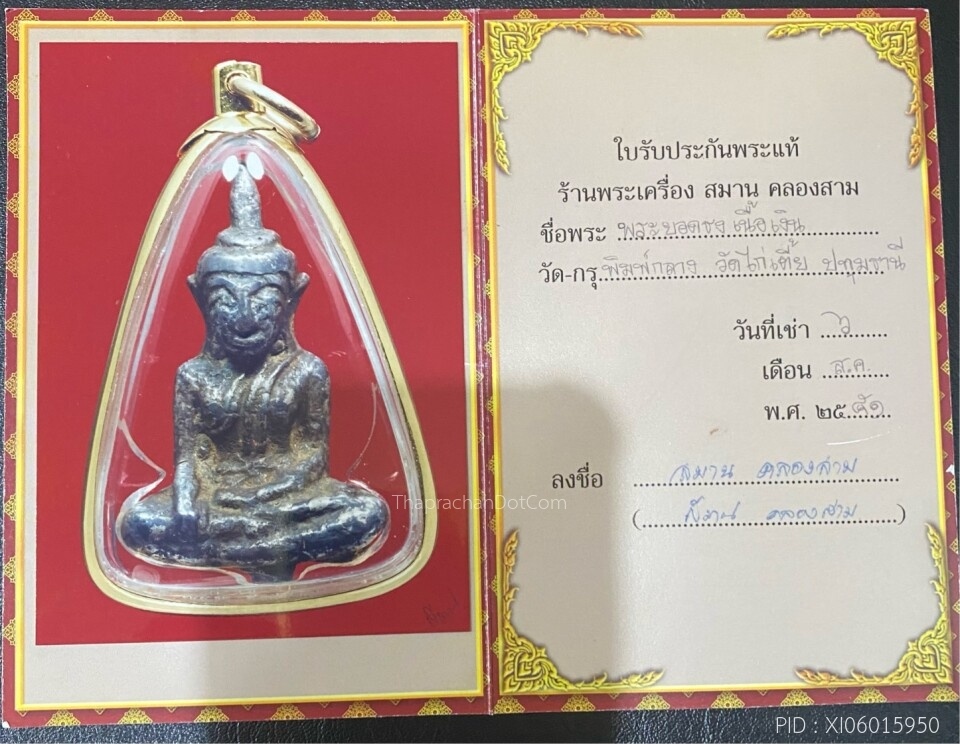 ใบรับประกันพระแท้
ร้านพระเครื่อง สมาน คลองสาม
ชื่อพระ พระยอดธง เนื้อเงิน
วัด-กรุ พิมพ์กลาง วัดไก่เตี้ย ปทุมธานี
วันที่เช่า ๖
เดือน ส.ค.
พ.ศ. ๒๕
ลงชื่อ สมาน คลองสาม
( คลองสาม )
ThaprachanDotCom
PID : XI06015950